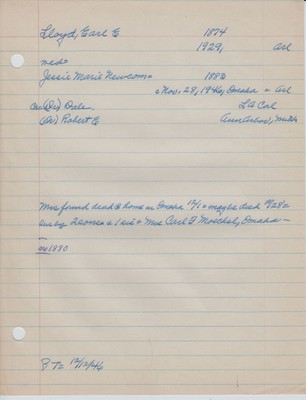 Lloyd, Earl E 1874
1929, Arl
wed
Jessie Marie Newcom 1880
Nov. 28, 1946, Omaha Arl
(Dr) Dale LA Cal
(Dr) Robert E Ann Arbor, Mich
Mrs found dead @ home in Omaha 12/1 maybe died 11/28
surv by 2 sons 1 sis Mrs Carl F Moeckel, Omaha
1880
B-T 12/12/46